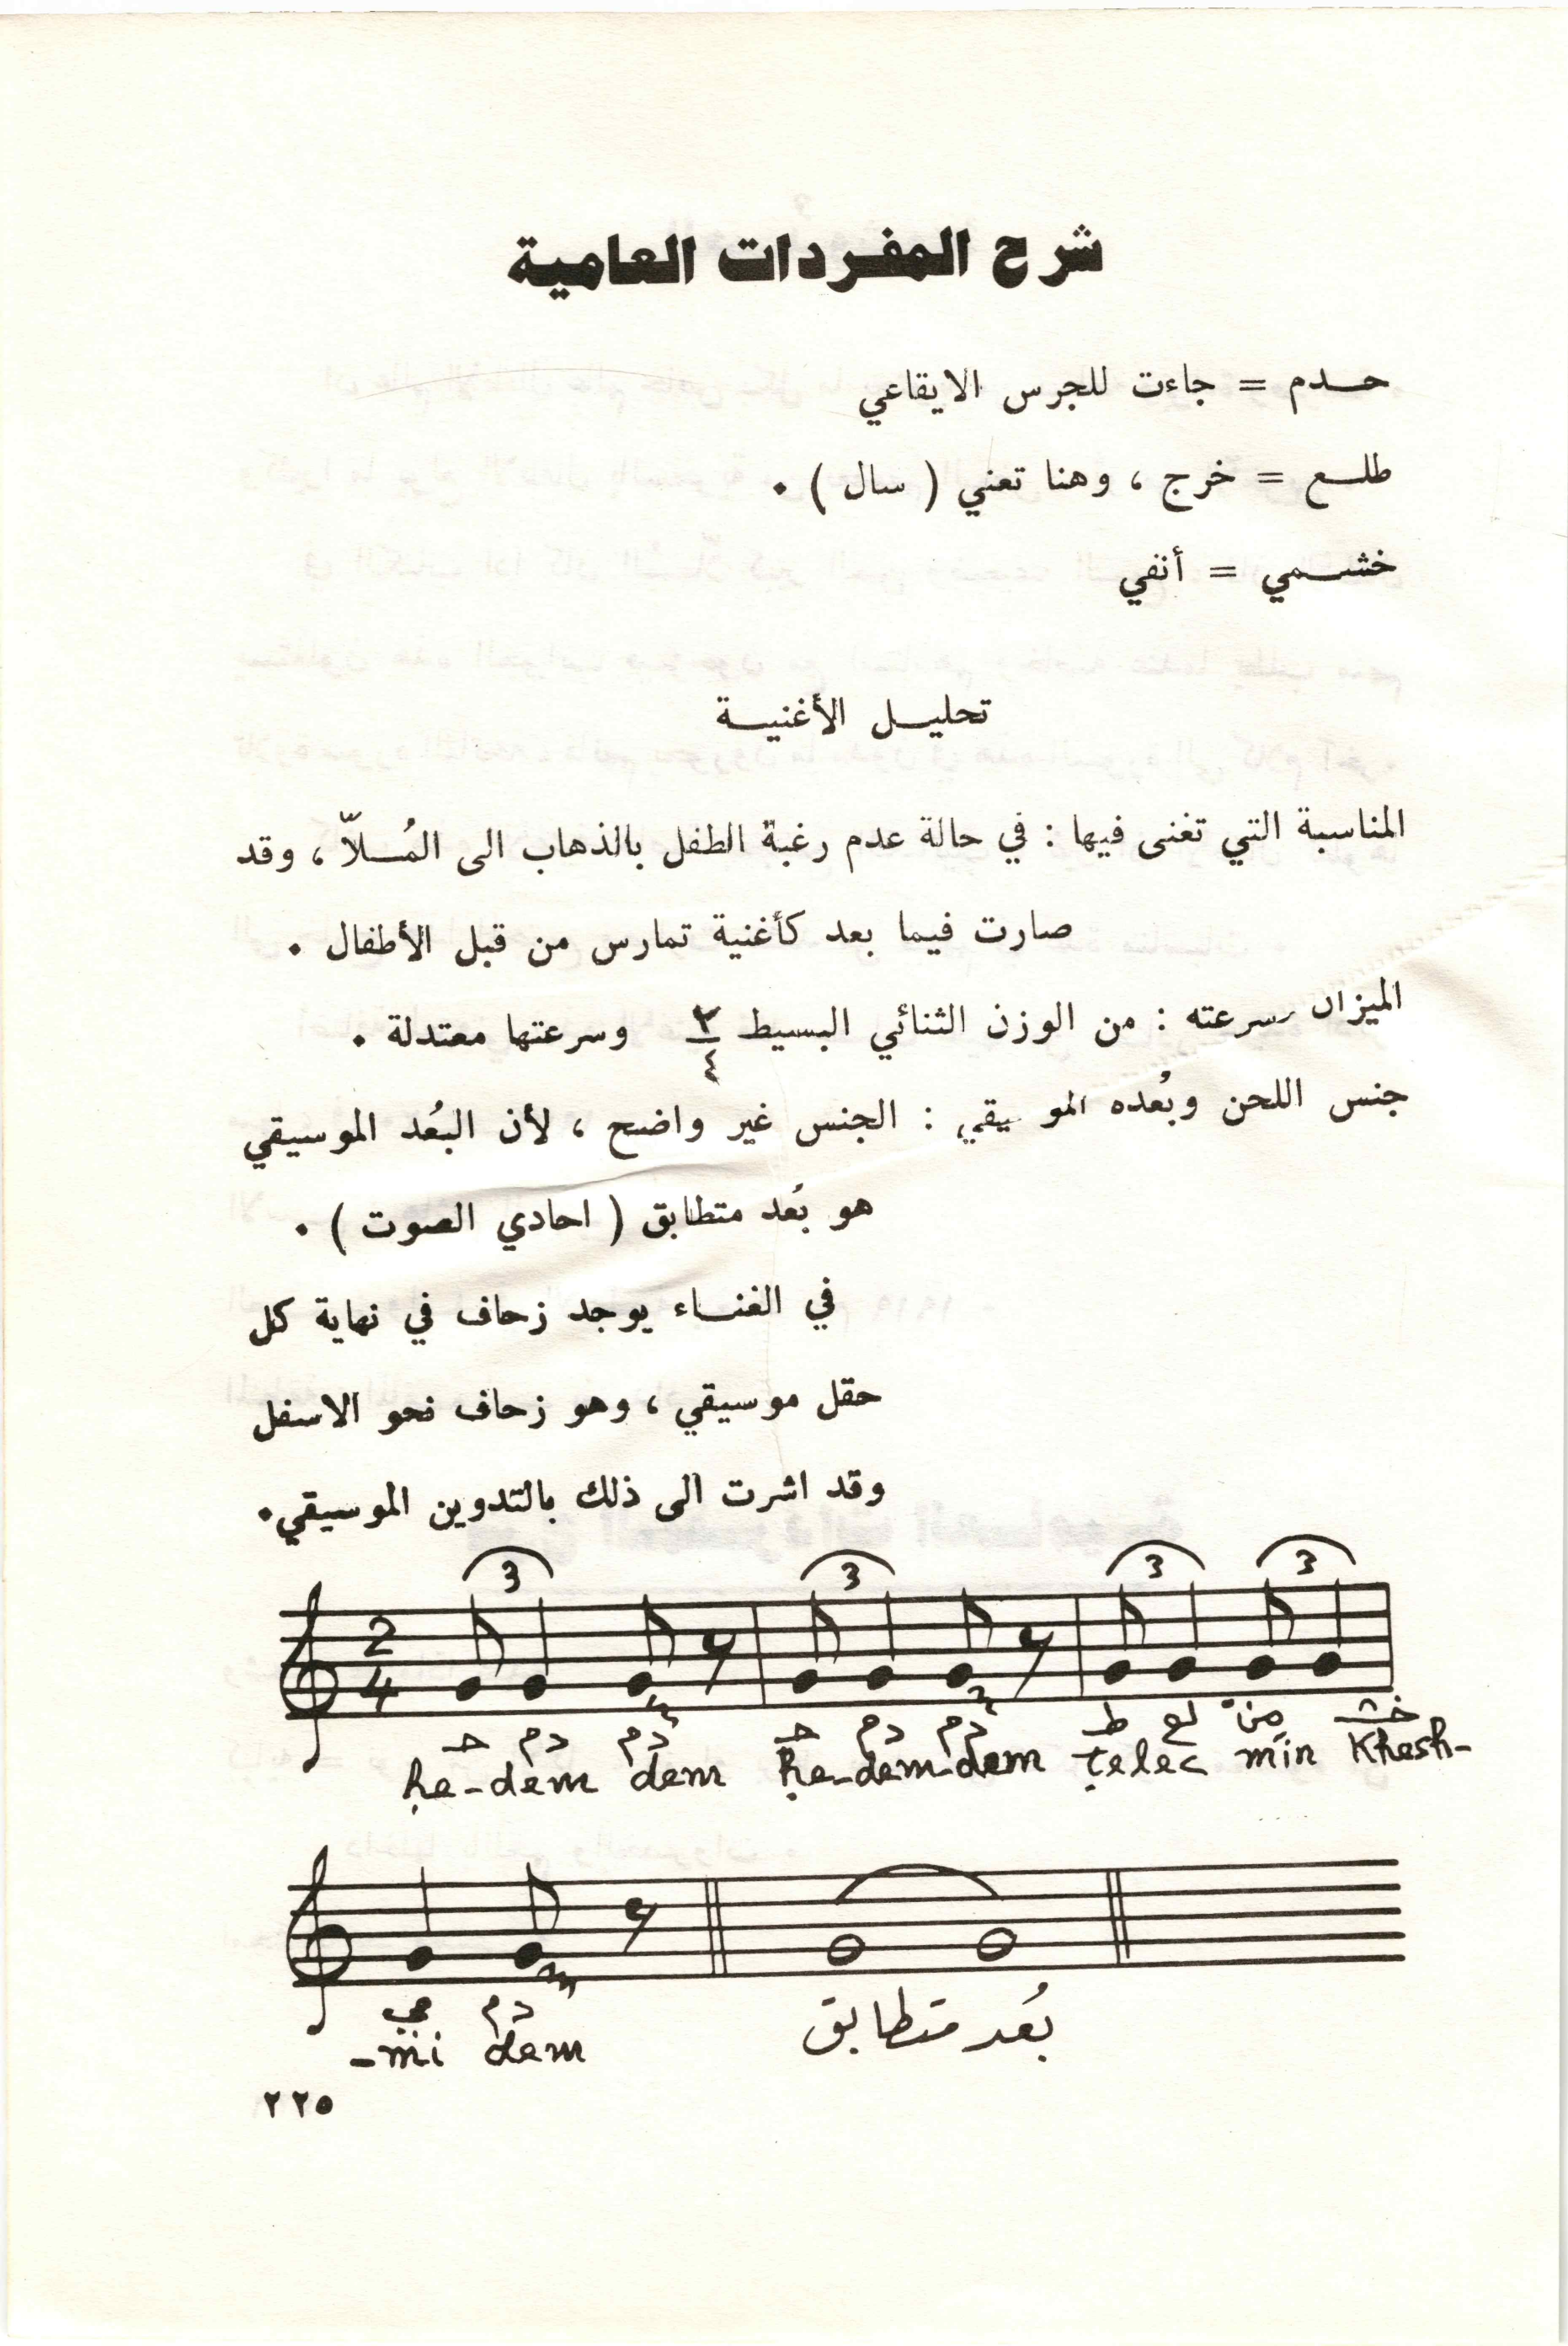 شرح المفردات العامية
حـدم = جاءت للجرس الايقاعي
طلـع = خرج ، وهنا تعني ( سال ) .
خشـمي = أنفي
تحليـل الأغنيـة
المناسبة التي تغنى فيها : في حالة عدم رغبة الطفل بالذهاب الى المُـلاّ ، وقد
صارت فيما بعد كأغنية تمارس من قبل الأطفال .
الميزان سرعته : من الوزن الثنائي البسيط ٢/٤ وسرعتها معتدلة .
جنس اللحن وبُعده المو يقي : الجنس غير واضح ، لأن البُعد الموسيقي
هو بُعد متطابق ( احادي الصوت ) .
في الغنـاء يوجد زحاف في نهاية كل
حقل موسيقي ، وهو زحاف نحو الاسفل
وقد اشرت الى ذلك بالتدوين الموسيقي.
3 3 3 3
2
4
حـ دم دم حـ دم دم طـ لع من خشـ
ḥe-dem dem ḥe-dem-dem ṭelec min Khesh-
مي دم
-mi dem
بُعد متطابق
٢٢٥